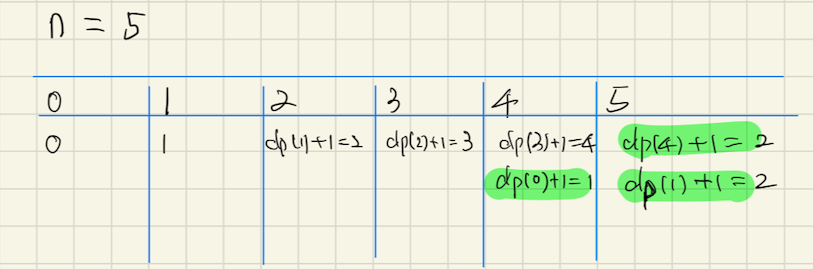 n = 5
0 1 2 3 4 5
0 1 dp(1)+1=2 dp(2)+1=3 dp(3)+1=4 dp(4)+1=2
dp(0)+1=1 dp(1)+1=2